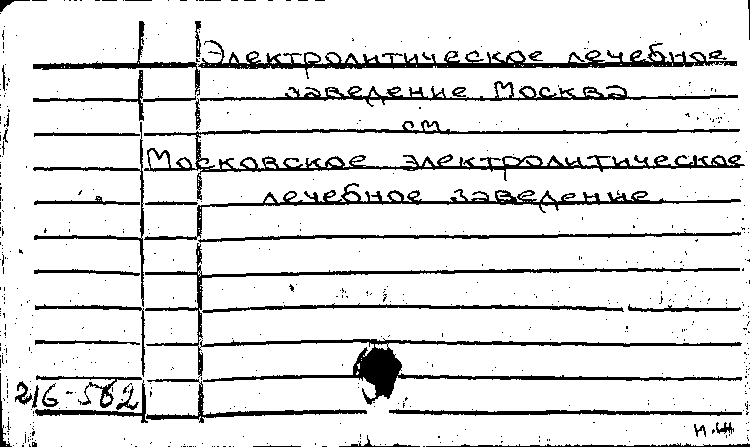 Электролитическое лечебное
заведение. Москва
см.
Московское электролитическое
лечебное заведение.
216-562